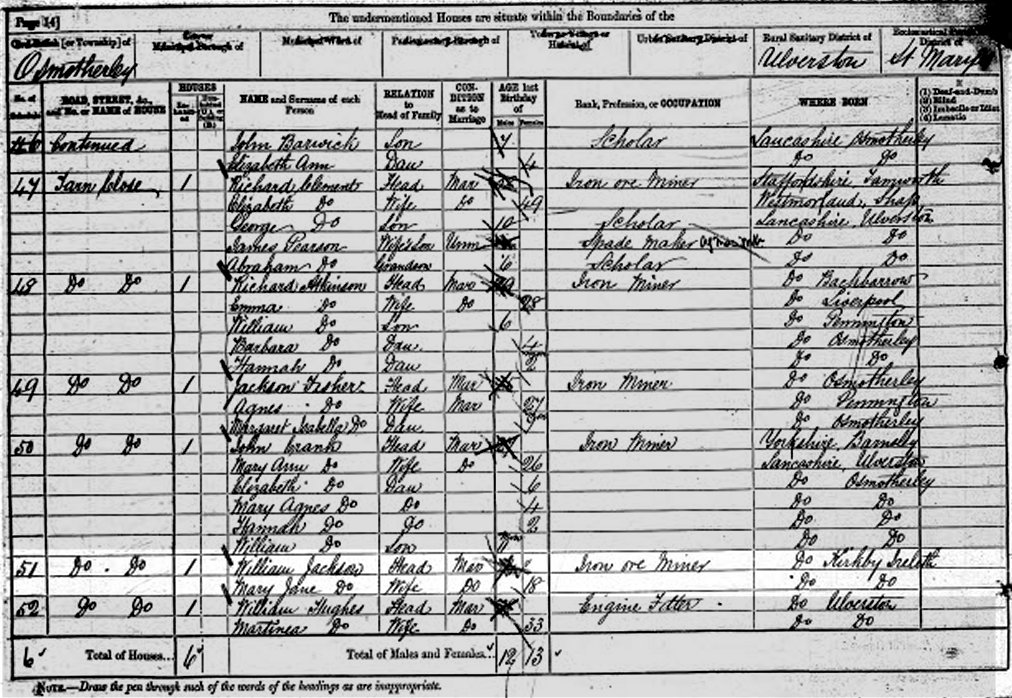 Page 14] The undermentioned Houses are situate within the Boundaries of the
[or Township] of Municipal Borough of Municipal Ward of Parliamentary Borough of Town or Village or Hamlet of Urban Sanitary District of Rural Sanitary District of Ecclesiastical District of
Osmotherley Ulverston St Mary
No. of Schedule ROAD, STREET, &c., and No. or NAME of HOUSE HOUSES NAME and Surname of each Person RELATION to Head of Family CONDITION as to Marriage AGE last Birthday of Males Females Rank, Profession, or OCCUPATION WHERE BORN (1) Deaf-and-Dumb (2) Blind (3) Imbecile or Idiot (4) Lunatic
46 Continued John Barwick Son 7 Scholar Lancashire Osmotherley
Elizabeth Ann Dau 4 Do Do
47 Tarn Close 1 Richard Clement Head Mar Iron ore Miner Staffordshire Tamworth
Elizabeth Do Wife Do 49 Westmorland, Shap
George Do Son 10 Scholar Lancashire Ulverston
James Pearson Wife's Son Unm Spade Maker Do Do
Abraham Do Grandson 6 Scholar Do Do
48 Do Do 1 Richard Atkinson Head Mar Iron Miner Do Backbarrow
Emma Do Wife Do 28 Do Liverpool
William Do Son 6 Do Pennington
Barbara Do Dau 4 Do Osmotherley
Hannah Do Dau 2 Do Do
49 Do Do 1 Jackson Fisher Head Mar Iron Miner Do Osmotherley
Agnes Do Wife Mar 27 Do Pennington
Margaret Isabella Do Dau Do Osmotherley
50 Do Do 1 John Crank Head Mar Iron Miner Yorkshire Barnsley
Mary Ann Do Wife Do 26 Lancashire, Ulverston
Elizabeth Do Dau 6 Do Osmotherley
Mary Agnes Do Do 4 Do Do
Hannah Do Do 2 Do Do
William Do Son Do Do
51 Do Do 1 William Jackson Head Mar Iron ore Miner Do Kirkby Ireleth
Mary Jane Do Wife Do 18 Do Do
52 Do Do 1 William Hughes Head Mar Engine Fitter Do Ulverston
Martinea Do Wife Do 33 Do Do
6 Total of Houses... 6 Total of Males and Females.. 12 13
NOTE.—Draw the pen through such of the words of the headings as are inappropriate.